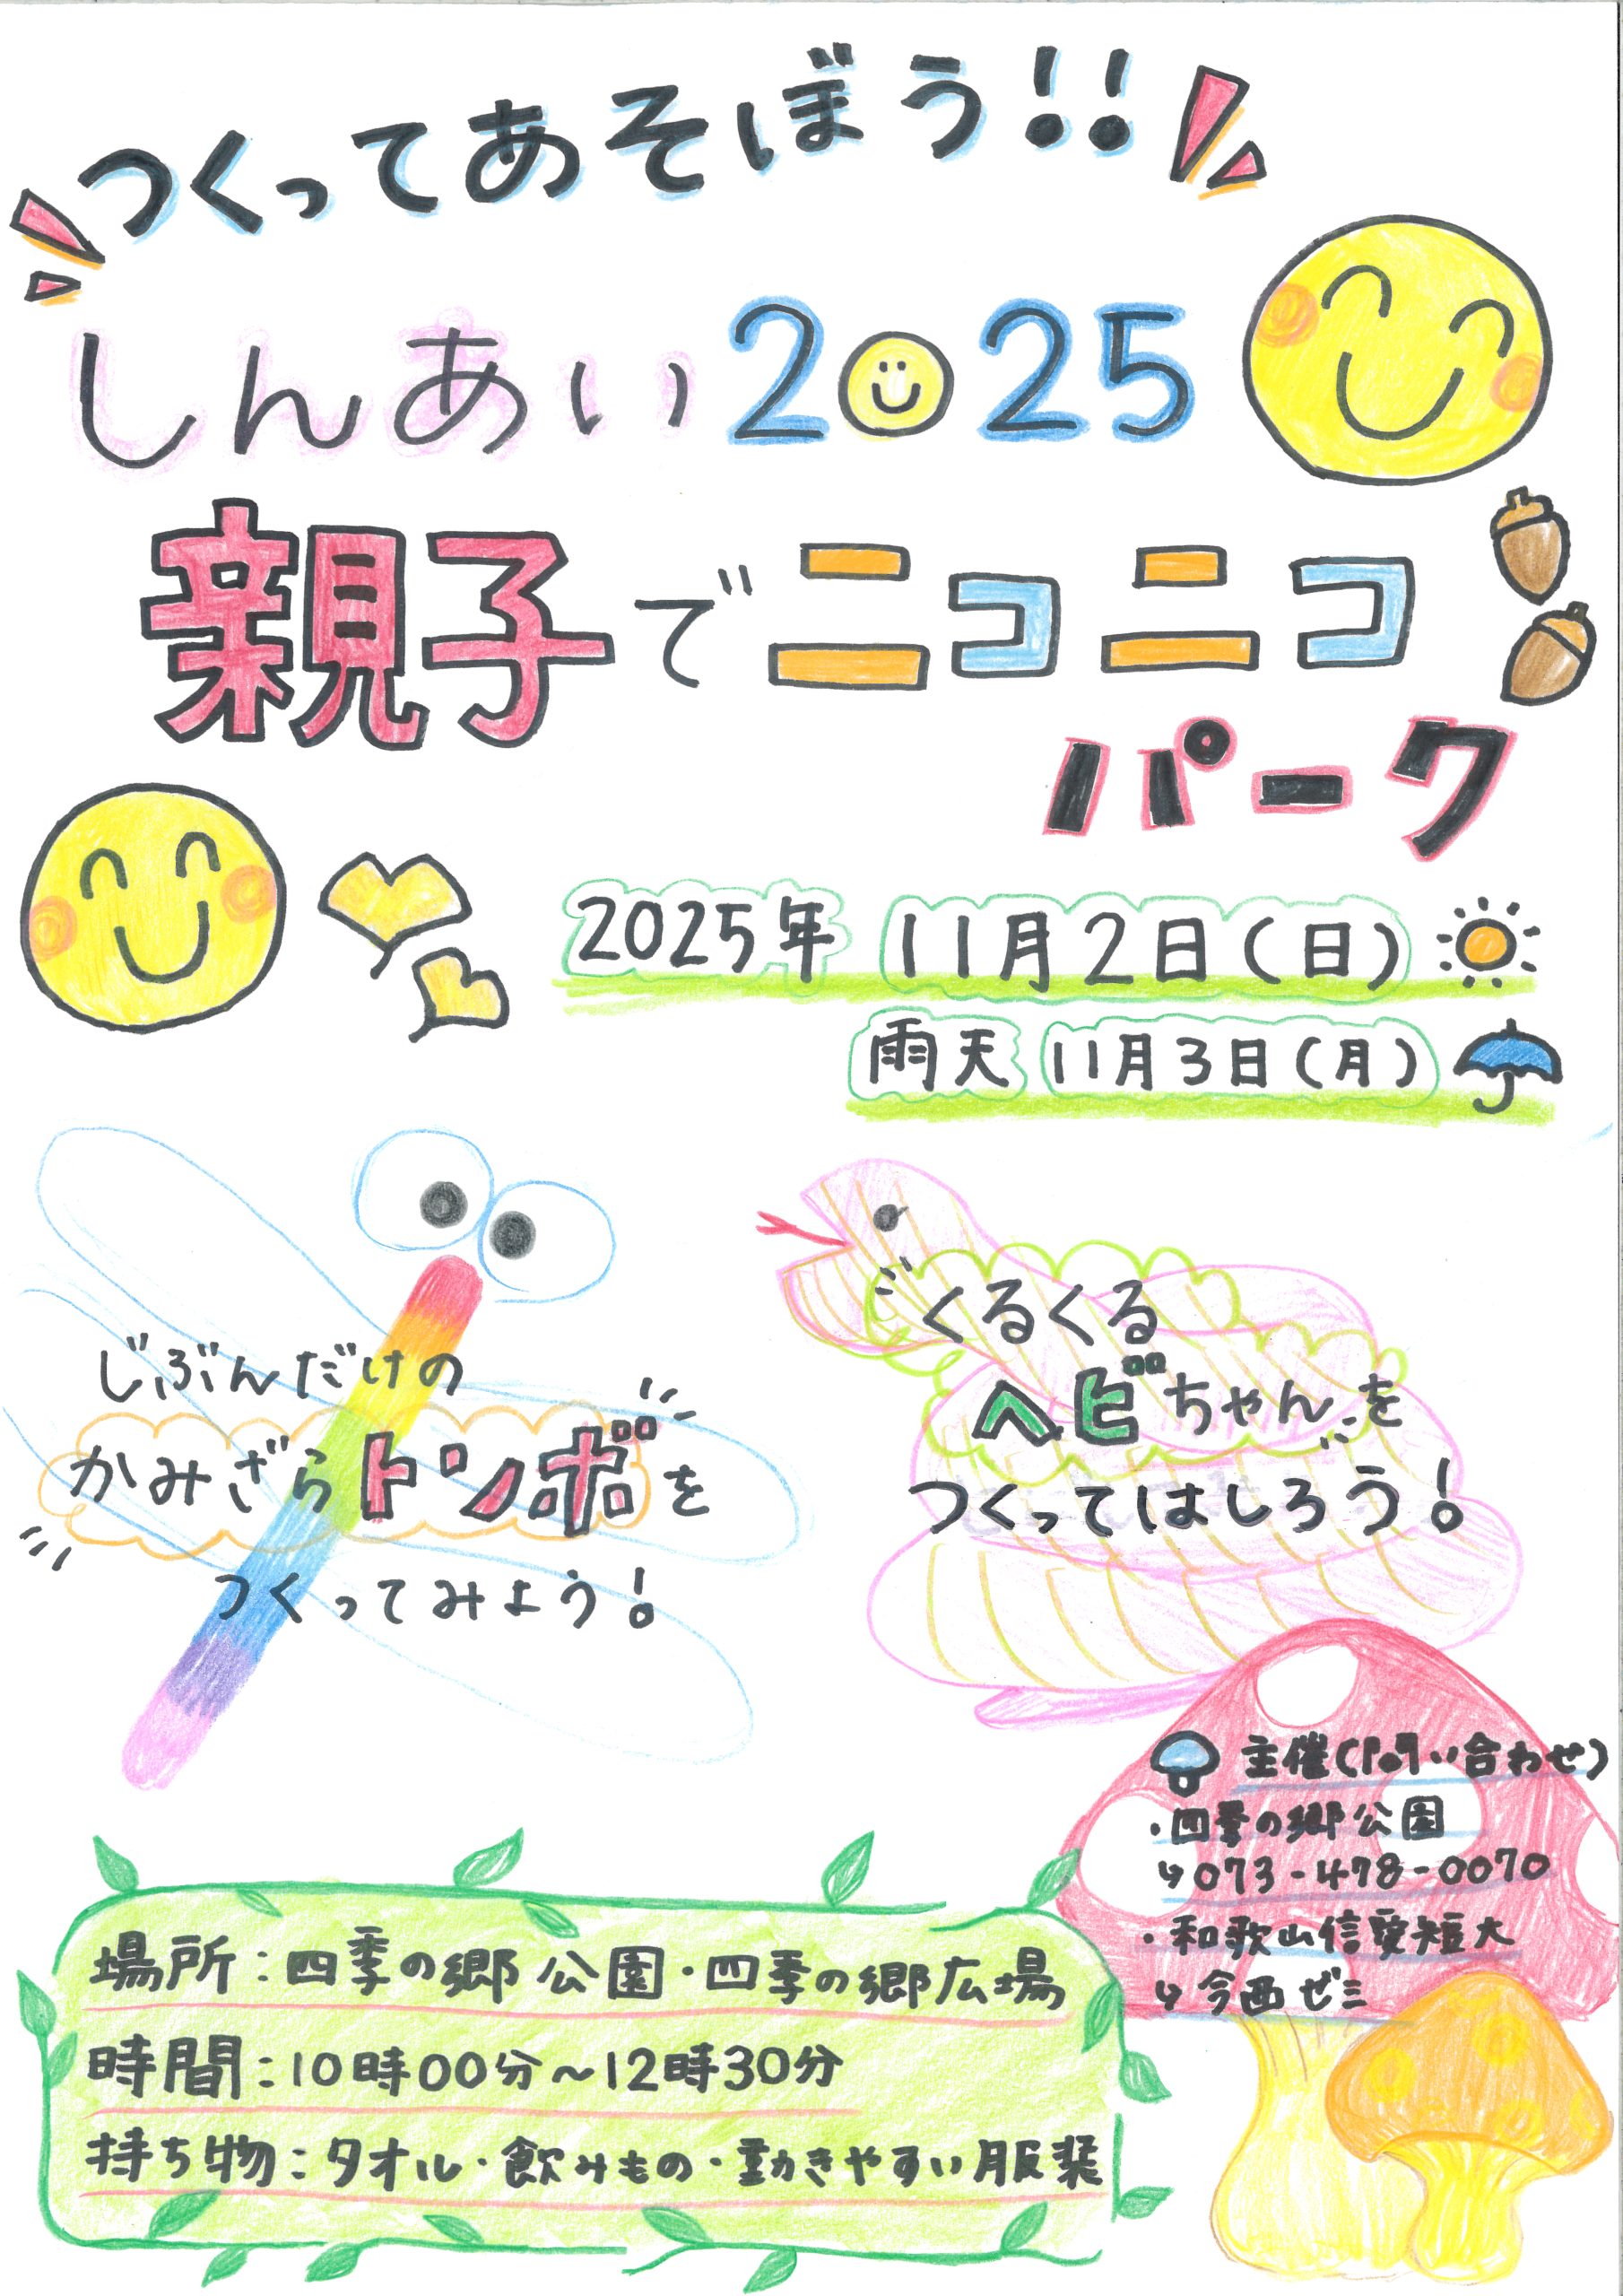 つくってあそぼう!!
しんあい2025
親子でニコニコ
パーク
2025年 11月2日(日)
雨天 11月3日(月)
じぶんだけの
かみざらトンボを
つくってみよう!
くるくる
ヘビちゃんを
つくってはしろう!
主催(問い合わせ)
・四季の郷公園
↳073-478-0070
・和歌山信愛短大
↳今西ゼミ
場所:四季の郷公園・四季の郷広場
時間:10時00分~12時30分
持ち物:タオル・飲みもの・動きやすい服装